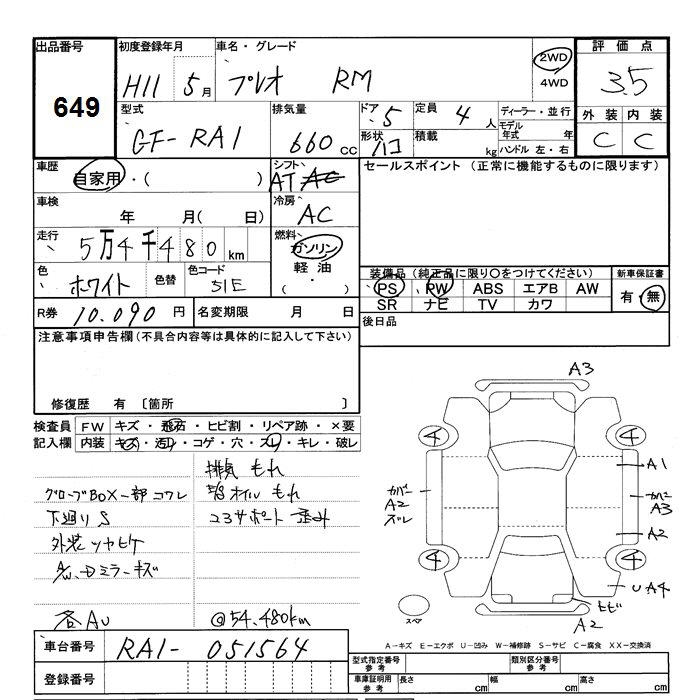 出品番号 初度登録年月 車名・グレード 評価点
649 H11 5月 プレオ RM 2WD 4WD 3.5
型式 排気量 ドア 5 定員 4人 ディーラー・並行 外装 内装
GF-RA1 660cc 形状 ハコ 積載 kg モデル年式 年 C C
ハンドル 左・右
車歴 自家用・( ) シフト AT AC セールスポイント (正常に機能するものに限ります)
車検 年 月( 日) 冷房 AC
走行 5万4千480km 燃料 ガソリン
軽油
・( )
色 ホワイト 色替 色コード 51E
装備品 (純正品に限り〇をつけてください) 新車保証書
PS PW ABS エアB AW 有・無
SR ナビ TV カワ
R券 10.090円 名変期限 月 日 後日品
注意事項申告欄(不具合内容等は具体的に記入して下さい)
修復歴 有 〔箇所 〕
検査員 FW キズ・飛石・ヒビ割・リペア跡・×要
記入欄 内装 キズ・汚レ・コゲ・穴・スレ・キレ・破レ
排気もれ
グローブBOX一部コワレ オイルもれ
下廻りS コアサポート歪み
外装ツヤビケ
ドアミラーキズ
各AU @54.480km
A3
4 4
A1
カバー A2 ズレ
カバー A3
A2
4 4
UA4
ヒビ
A2
スペア
A-キズ E-エクボ U-凹み W-補修跡 S-サビ C-腐食 XX-交換済
車台番号 RA1-051564
登録番号
型式指定番号 参考 類別区分番号 参考
車庫証明用 参考 長さ cm 幅 cm 高さ cm